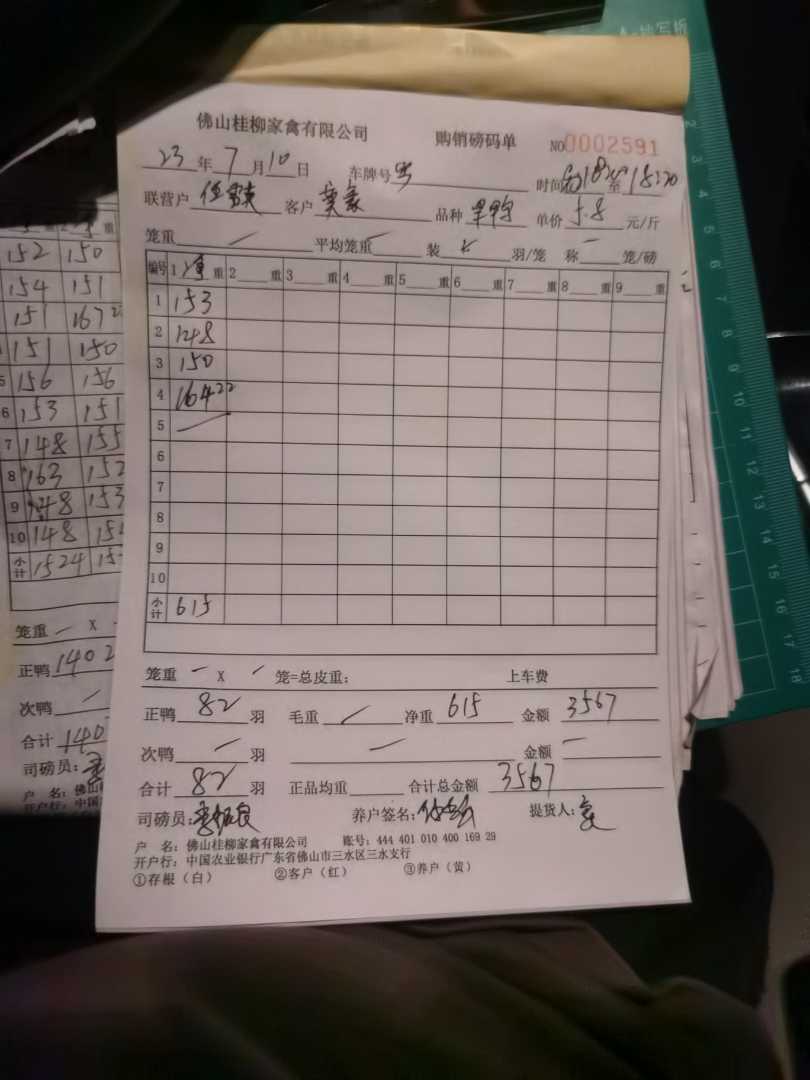 佛山桂柳家禽有限公司 购销磅码单 NO0002591
23年7月10日 车牌号 时间 至18:20
联营户 客户 品种 单价5.8元/斤
笼重 — 平均笼重 — 装 羽/笼 称 — 笼/磅
编号 1净重 2 重 3 重 4 重 5 重 6 重 7 重 8 重 9 重
1 153
2 148
3 150
4 164 22
5 —
6
7
8
9
10
小计 615
笼重 — X — 笼=总皮重: 上车费
正鸭 82 羽 毛重 — 净重 615 金额 3567
次鸭 — 羽 — 金额 —
合计 82 羽 正品均重 合计总金额 3567
司磅员: 养户签名: 提货人:
户 名: 佛山桂柳家禽有限公司 账号: 444 401 010 400 169 29
开户行: 中国农业银行广东省佛山市三水区三水支行
①存根(白) ②客户(红) ③养户(黄)
152 150
154 151
151 167
151 150
5 156 156
6 153 151
7 148 155
8 163 152
9 148 153
10 148
小计 1524
笼重 — X
正鸭 1402
次鸭 —
合计 140
司磅员:
户 名: 佛山
开户行: 中国